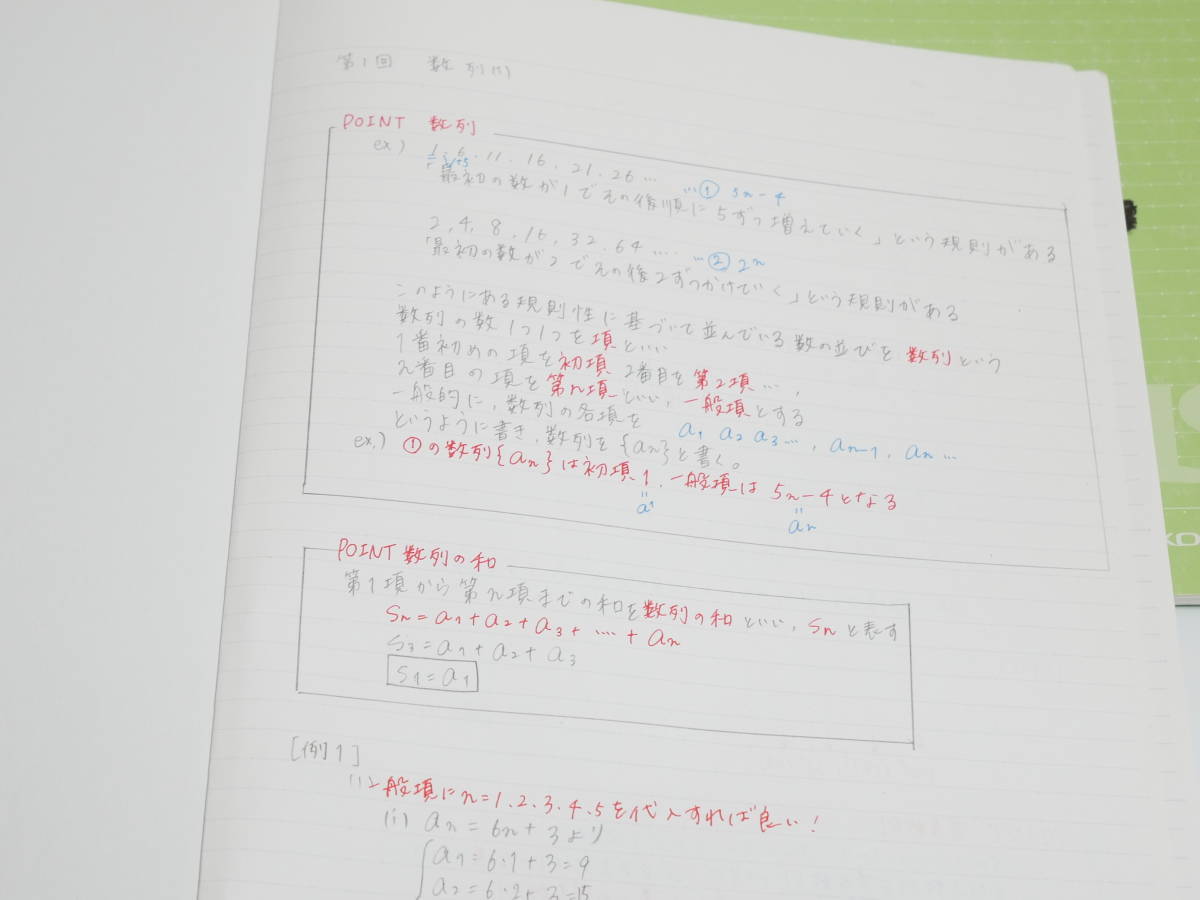 第1回 数列(1)
POINT 数列
ex) 1, 6, 11, 16, 21, 26 … …① 5n-4
+5
「最初の数が1でその後順に5ずつ増えていく」という規則がある
2, 4, 8, 16, 32, 64 …. …② 2ⁿ
「最初の数が2でその後2ずつかけていく」という規則がある
このようにある規則性に基づいて並んでいる数の並びを数列という
数列の数1つ1つを項といい
1番初めの項を初項 2番目を第2項 …,
n番目の項を第n項といい, 一般項とする
一般的に, 数列の各項を a₁ a₂ a₃…, aₙ₋₁, aₙ …
というように書き, 数列を{aₙ}と書く。
ex.) ①の数列{aₙ}は初項1, 一般項は 5n-4となる
= a₁ = aₙ
POINT 数列の和
第1項から第n項までの和を数列の和といい, Sₙと表す
Sₙ = a₁ + a₂ + a₃ + …. + aₙ
S₃ = a₁ + a₂ + a₃
S₁ = a₁
[例1]
(1) 一般項にn=1.2.3.4.5を代入すれば良い!
(i) aₙ = 6n + 3より
a₁ = 6・1 + 3 = 9
a₂ = 6・2 + 3 = 15